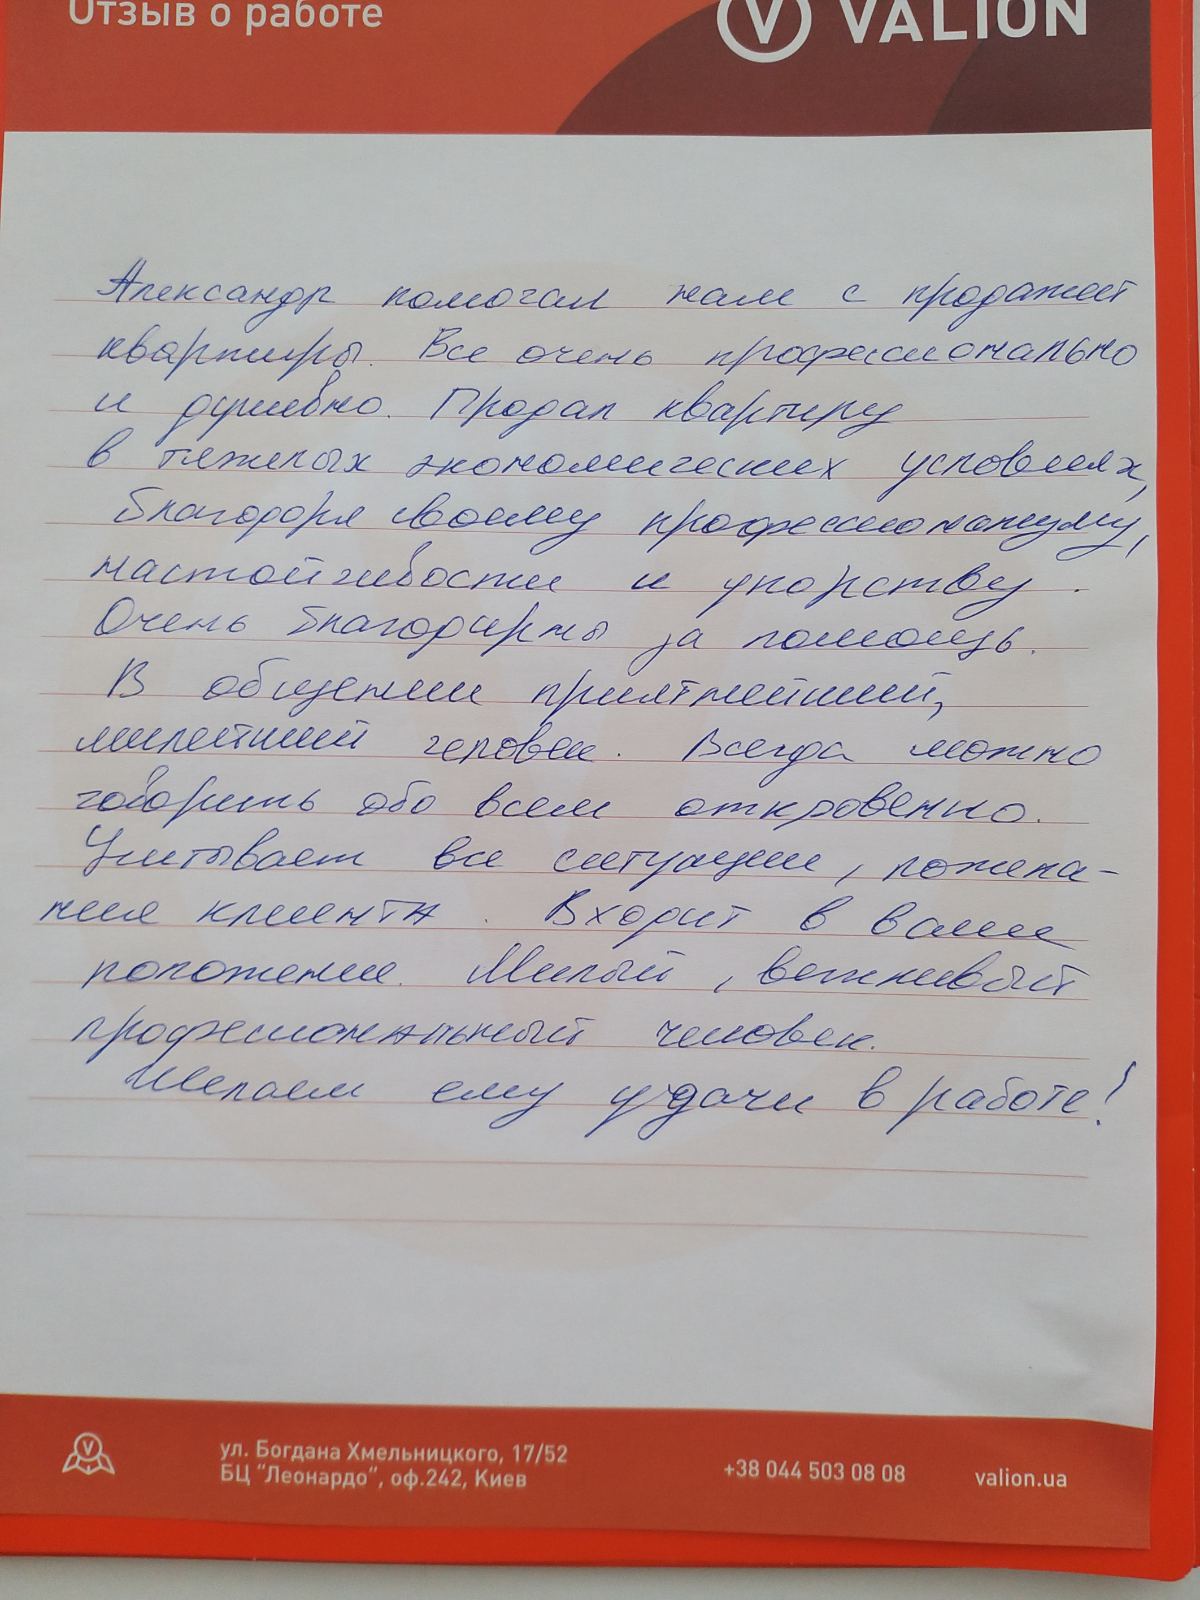 Отзыв о работе
VALION
Александр помогал нам с продажей
квартиры. Все очень профессионально
и душевно. Продал квартиру
в тяжелых экономических условиях,
благодаря своему профессионализму,
настойчивости и упорству.
Очень благодарны за помощь.
В общении приятнейший,
милейший человек. Всегда можно
говорить обо всем откровенно.
Учитывает все ситуации, пожела-
ния клиента. Входит в ваше
положение. Милый, вежливый
профессиональный человек.
Желаем ему удачи в работе!
ул. Богдана Хмельницкого, 17/52
БЦ "Леонардо", оф.242, Киев
+38 044 503 08 08
valion.ua